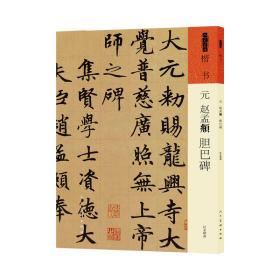 楷书
元 赵孟頫 胆巴碑
大元勑賜龍興寺大
覺普慈廣照無上帝
師之碑
集賢學士資德大